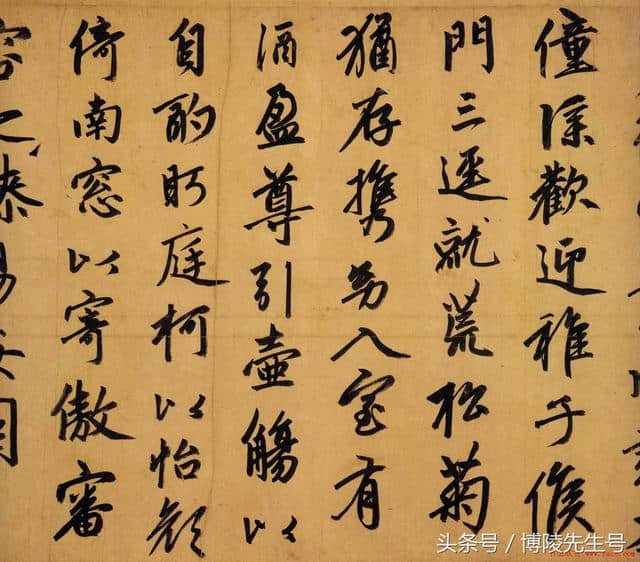 僮僕歡迎稚子候
門三逕就荒松菊
猶存携幼入室有
酒盈尊引壺觴以
自酌眄庭柯以怡顔
倚南窓以寄傲審
头条号 / 博陵先生号